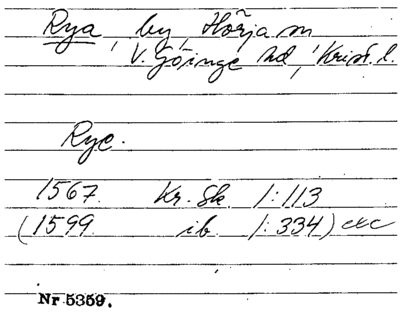 Rya, by, Hörja sn
V. Göinge hd, Krist. l.
Rye.
1567. Kr. Sk. 1:113
(1599 ib. 1:334) etc
Nr 5359.